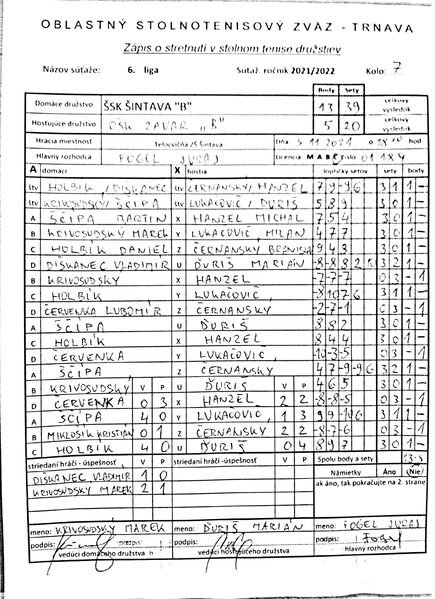 OBLASTNÝ STOLNOTENISOVÝ ZVÄZ - TRNAVA
Zápis o stretnutí v stolnom tenise družstiev
Názov súťaže: 6. liga Súťaž. ročník 2021/2022 Kolo: 7
Body Sety
Domáce družstvo ŠSK ŠINTAVA "B" 13 39 celkový výsledok
Hosťujúce družstvo OŠK ZAVAR "B" 5 20 celkový výsledok
Hracia miestnosť Telocvičňa ZŠ Šintava dňa 5.11 2021 o hod
Hlavný rozhodca FOGEL JURAJ Licencia MABC číslo 01184
A domáci X hostia loptičky setov sety body
štv HOLBÍK / DISKANEC štv ČERNANSKÝ/HANZEL 7 9 -9 6 3 1 1 -
štv KRIVOSUDSKÝ/ŠČIPA štv LUKAČOVIČ/ĎURIŠ 5 8 9 3 0 1 -
A ŠČIPA MARTIN X HANZEL MICHAL 7 5 4 3 0 1 -
B KRIVOSUDSKÝ MAREK Y LUKAČOVIČ MILAN 4 7 7 3 0 1 -
C HOLBÍK DANIEL Z ČERNANSKÝ BRANISLAV 9 4 3 3 0 1 -
D DISKANEC VLADIMÍR U ĎURIŠ MARIÁN 3 2 1 -
B KRIVOSUDSKÝ X HANZEL -2 -7 -7 0 3 - 1
C HOLBÍK Y LUKAČOVIČ -8 10 7 6 3 1 1 -
D ČERVENKA ĽUBOMÍR Z ČERNANSKÝ -2 -7 -1 0 3 - 1
A ŠČIPA U ĎURIŠ 8 8 2 3 0 1 -
C HOLBÍK X HANZEL 8 4 4 3 0 1 -
D ČERVENKA Y LUKAČOVIČ -10 -3 -5 0 3 - 1
A ŠČIPA Z ČERNANSKÝ 4 -7 9 -9 6 3 2 1 -
B KRIVOSUDSKÝ V P U ĎURIŠ V P 4 6 5 3 0 1 -
D ČERVENKA 0 3 X HANZEL 2 2 -8 -8 -5 0 3 - 1
A ŠČIPA 4 0 Y LUKAČOVIČ 1 3 9 9 -10 6 3 1 1 -
B MIKLOSIK KRISTIÁN 0 1 Z ČERNANSKÝ 2 2 -8 -7 -6 0 3 - 1
C HOLBÍK 4 0 U ĎURIŠ 0 4 8 9 7 3 0 1 -
striedaní hráči - úspešnosť V P striedaní hráči - úspešnosť V P Spolu body a sety 13:5
DISKANEC VLADIMÍR 1 0 Námietky Áno Nie
KRIVOSUDSKÝ MAREK 2 1 ak áno, tak pokračujte na 2. strane
meno: KRIVOSUDSKÝ MAREK meno: ĎURIŠ MARIÁN meno: FOGEL JURAJ
podpis: podpis: podpis: Fogel
vedúci domáceho družstva vedúci hosťujúceho družstva hlavný rozhodca